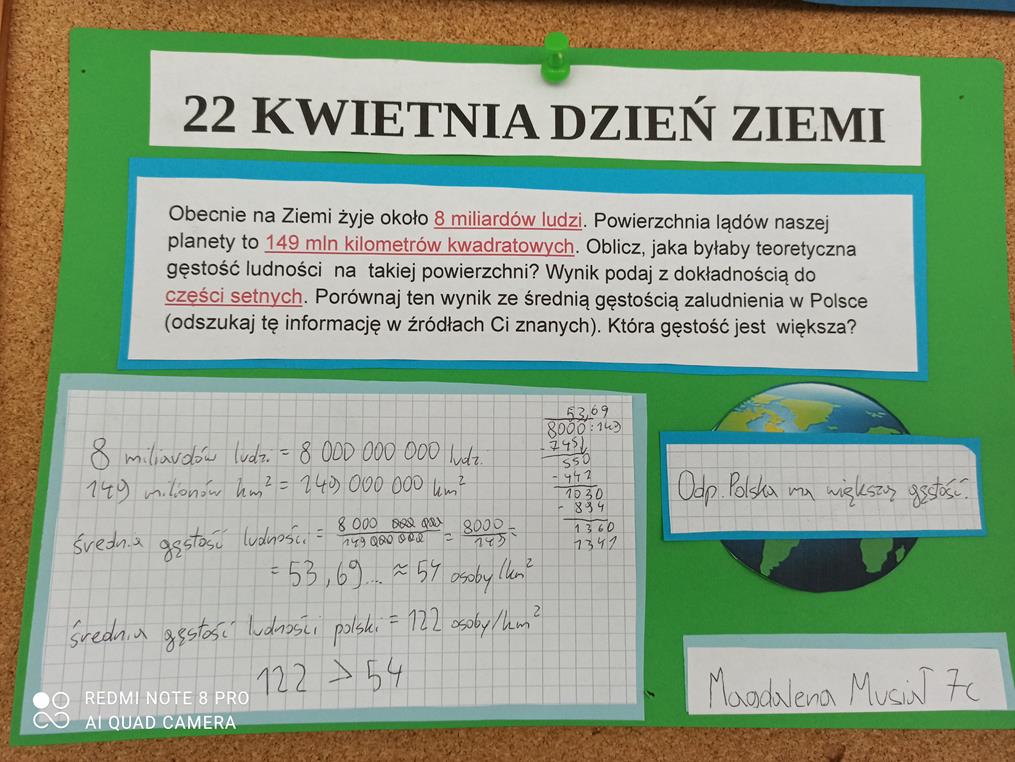 22 KWIETNIA DZIEŃ ZIEMI
Obecnie na Ziemi żyje około 8 miliardów ludzi. Powierzchnia lądów naszej
planety to 149 mln kilometrów kwadratowych. Oblicz, jaka byłaby teoretyczna
gęstość ludności na takiej powierzchni? Wynik podaj z dokładnością do
części setnych. Porównaj ten wynik ze średnią gęstością zaludnienia w Polsce
(odszukaj tę informację w źródłach Ci znanych). Która gęstość jest większa?
8 miliardów ludzi = 8 000 000 000 ludzi
149 milionów km² = 149 000 000 km²
średnia gęstość ludności = 8 000 000 000 / 149 000 000 = 8000 / 149 =
= 53,69... ≈ 54 osoby/km²
średnia gęstość ludności polski = 122 osoby/km²
122 > 54
53,69
8000:149
-745
550
-447
1030
- 894
1360
1341
Odp. Polska ma większą gęstość.
Magdalena Musiał 7c
REDMI NOTE 8 PRO
AI QUAD CAMERA